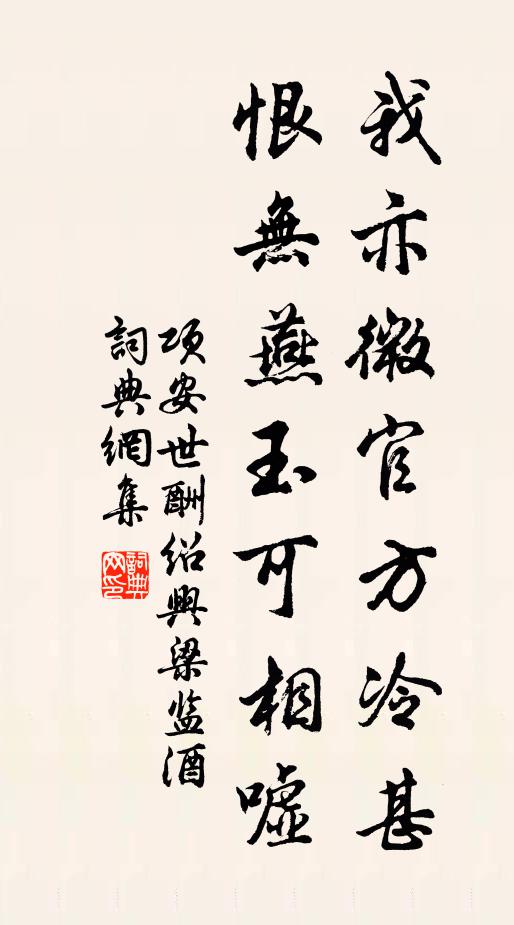 我亦微官方冷甚
恨無燕玉可相噓
項安世酬绍興梁监酒
詞典網集
詞典网印